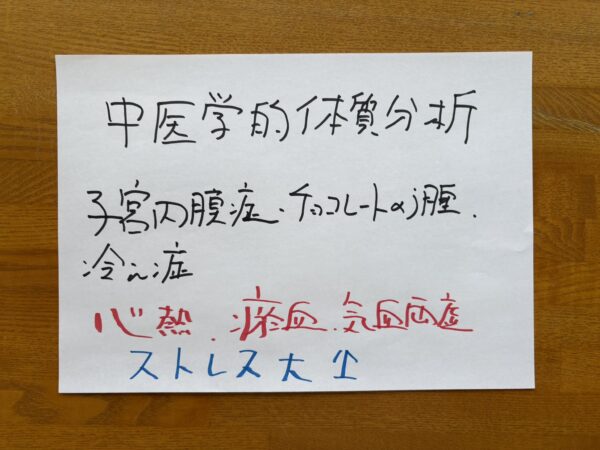 中医学的体質分析
子宮内膜症・チョコレートのう腫・
冷え症
心熱・瘀血・気血両虚
ストレス大↑